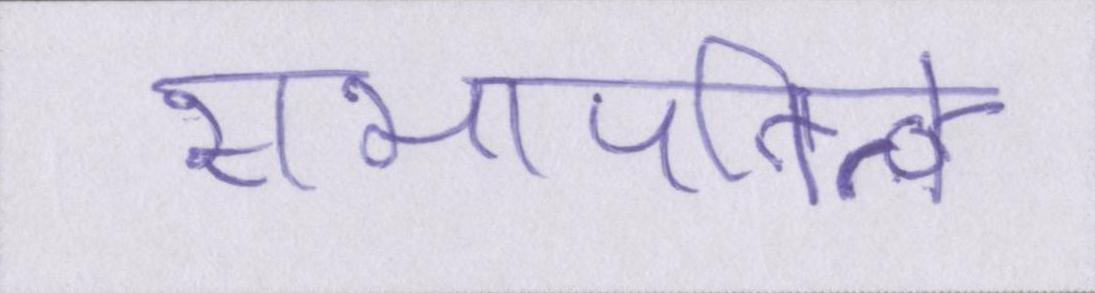 सभापतित्वे